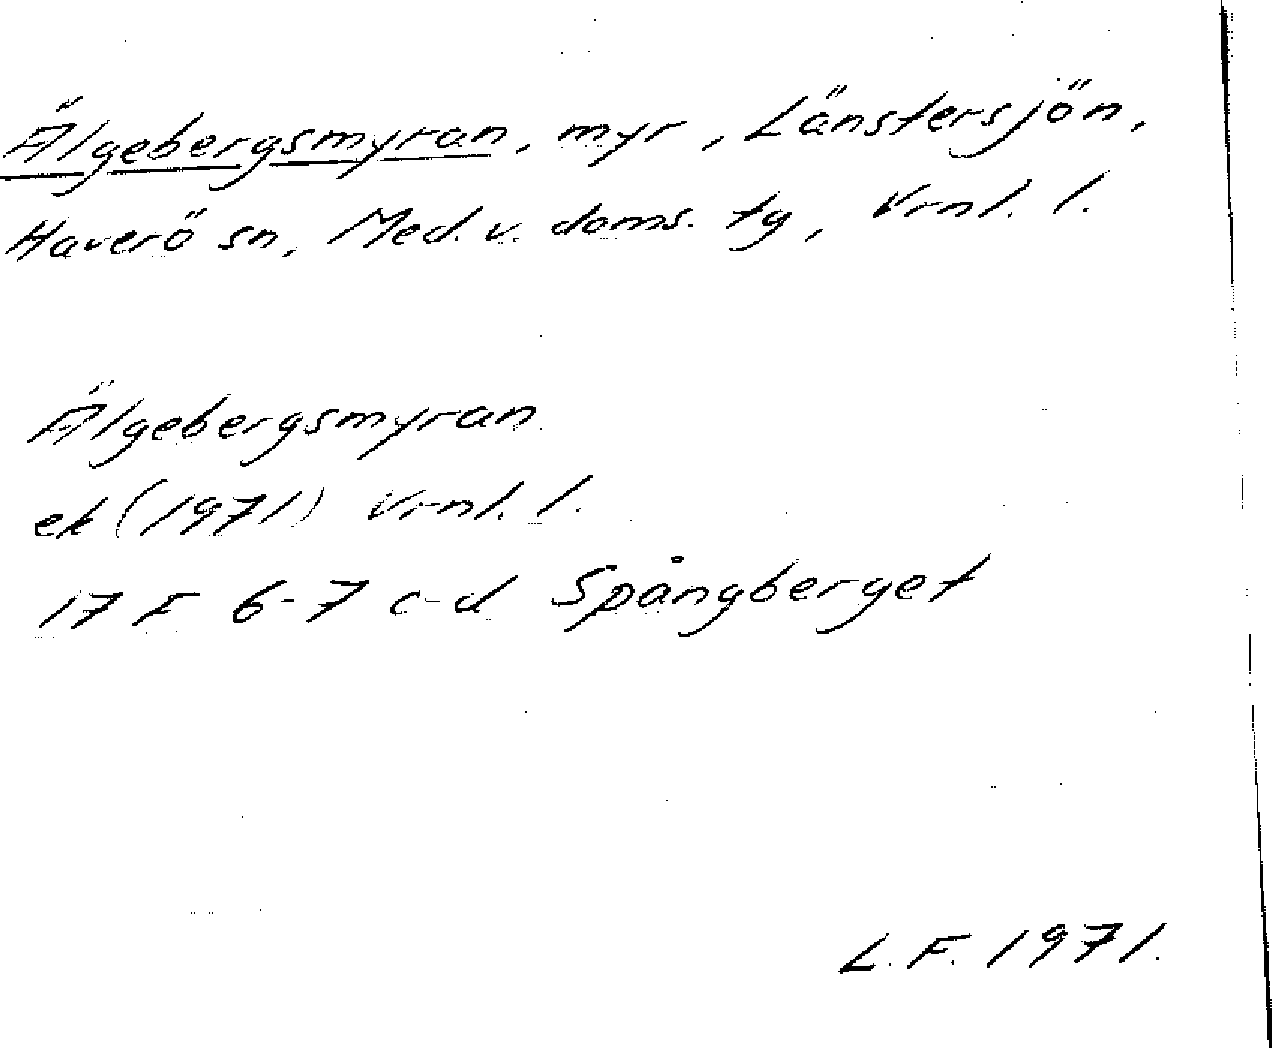 Älgebergsmyran, myr, Länstersjön,
Haverö sn, Med. v. doms. tg, Vrnl. l.
Älgebergsmyran
ek (1971) Vrnl. l.
17 F 6-7 c-d Spångberget
L.F. 1971.